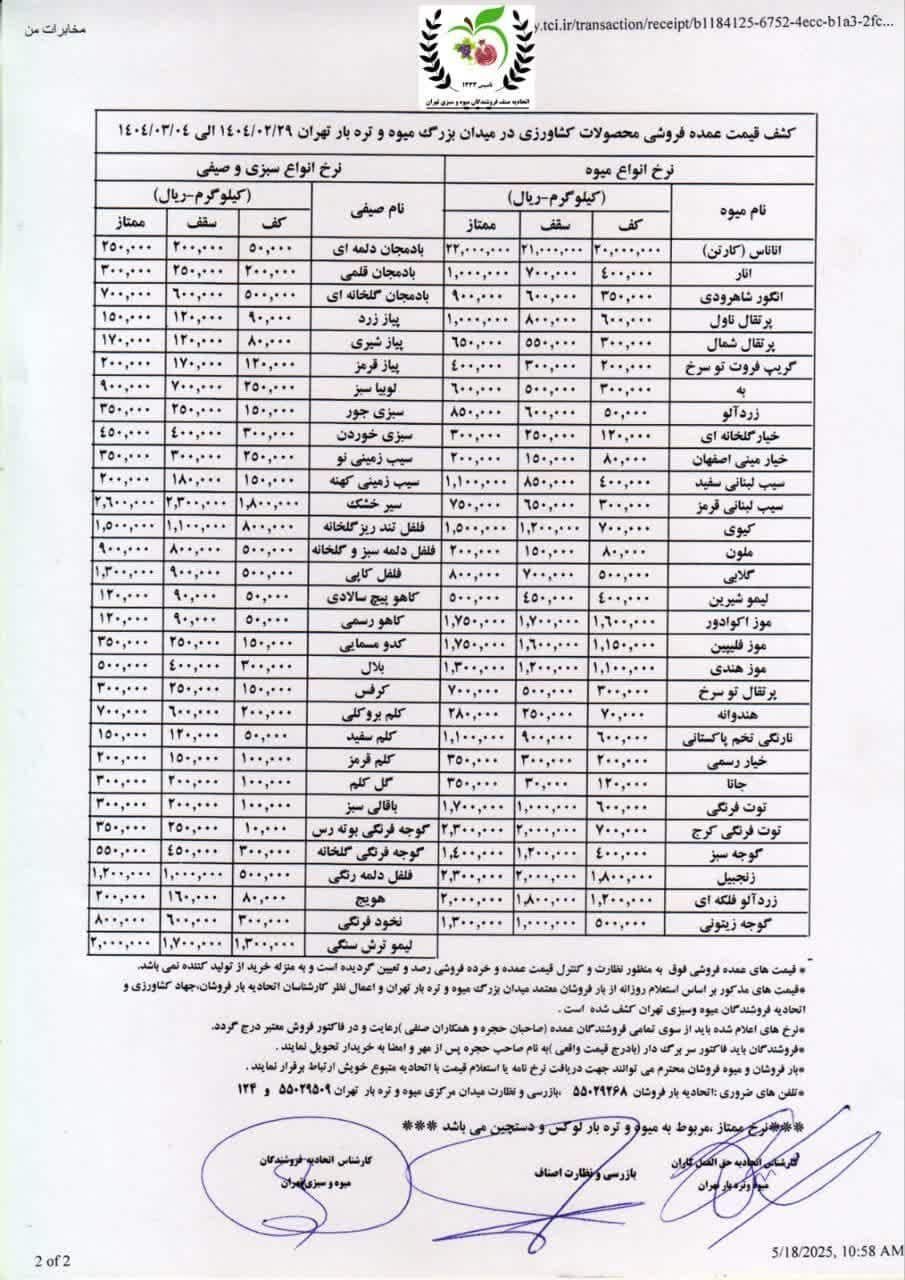 مخابرات من
y.tci.ir/transaction/receipt/b1184125-6752-4ecc-b1a3-2fc...
تاسیس ۱۳۳۳
اتحادیه صنف فروشندگان میوه و سبزی تهران
کشف قیمت عمده فروشی محصولات کشاورزی در میدان بزرگ میوه و تره بار تهران ۱۴۰۴/۰۲/۲۹ الی ۱۴۰۴/۰۳/۰۴
نرخ انواع میوه نرخ انواع سبزی و صیفی
نام میوه (کیلوگرم-ریال) نام صیفی (کیلوگرم-ریال)
کف سقف ممتاز کف سقف ممتاز
اناناس (کارتن) ۲۰,۰۰۰,۰۰۰ ۲۱,۰۰۰,۰۰۰ ۲۲,۰۰۰,۰۰۰ بادمجان دلمه ای ۵۰,۰۰۰ ۲۰۰,۰۰۰ ۲۵۰,۰۰۰
انار ۴۰۰,۰۰۰ ۷۰۰,۰۰۰ ۱,۰۰۰,۰۰۰ بادمجان قلمی ۲۰۰,۰۰۰ ۲۵۰,۰۰۰ ۳۰۰,۰۰۰
انگور شاهرودی ۳۵۰,۰۰۰ ۶۰۰,۰۰۰ ۹۰۰,۰۰۰ بادمجان گلخانه ای ۵۰۰,۰۰۰ ۶۰۰,۰۰۰ ۷۰۰,۰۰۰
پرتقال ناول ۶۰۰,۰۰۰ ۸۰۰,۰۰۰ ۱,۰۰۰,۰۰۰ پیاز زرد ۹۰,۰۰۰ ۱۲۰,۰۰۰ ۱۵۰,۰۰۰
پرتقال شمال ۳۰۰,۰۰۰ ۵۵۰,۰۰۰ ۶۵۰,۰۰۰ پیاز شیری ۸۰,۰۰۰ ۱۲۰,۰۰۰ ۱۷۰,۰۰۰
گریپ فروت تو سرخ ۲۰۰,۰۰۰ ۳۰۰,۰۰۰ ۴۰۰,۰۰۰ پیاز قرمز ۱۲۰,۰۰۰ ۱۷۰,۰۰۰ ۲۰۰,۰۰۰
به ۳۰۰,۰۰۰ ۵۰۰,۰۰۰ ۶۰۰,۰۰۰ لوبیا سبز ۲۵۰,۰۰۰ ۷۰۰,۰۰۰ ۹۰۰,۰۰۰
زردآلو ۵۰,۰۰۰ ۶۰۰,۰۰۰ ۸۵۰,۰۰۰ سبزی جور ۱۵۰,۰۰۰ ۲۵۰,۰۰۰ ۳۵۰,۰۰۰
خیارگلخانه ای ۱۲۰,۰۰۰ ۲۵۰,۰۰۰ ۳۰۰,۰۰۰ سبزی خوردن ۳۰۰,۰۰۰ ۴۰۰,۰۰۰ ۴۵۰,۰۰۰
خیار مینی اصفهان ۸۰,۰۰۰ ۱۵۰,۰۰۰ ۲۰۰,۰۰۰ سیب زمینی نو ۲۵۰,۰۰۰ ۳۰۰,۰۰۰ ۳۵۰,۰۰۰
سیب لبنانی سفید ۴۰۰,۰۰۰ ۸۵۰,۰۰۰ ۱,۱۰۰,۰۰۰ سیب زمینی کهنه ۱۵۰,۰۰۰ ۱۸۰,۰۰۰ ۲۰۰,۰۰۰
سیب لبنانی قرمز ۳۰۰,۰۰۰ ۶۵۰,۰۰۰ ۷۵۰,۰۰۰ سیر خشک ۱,۸۰۰,۰۰۰ ۲,۳۰۰,۰۰۰ ۲,۶۰۰,۰۰۰
کیوی ۷۰۰,۰۰۰ ۱,۲۰۰,۰۰۰ ۱,۵۰۰,۰۰۰ فلفل تند ریز گلخانه ۸۰۰,۰۰۰ ۱,۱۰۰,۰۰۰ ۱,۵۰۰,۰۰۰
ملون ۸۰,۰۰۰ ۱۵۰,۰۰۰ ۲۰۰,۰۰۰ فلفل دلمه سبز و گلخانه ۵۰۰,۰۰۰ ۸۰۰,۰۰۰ ۹۰۰,۰۰۰
گلابی ۵۰۰,۰۰۰ ۷۰۰,۰۰۰ ۸۰۰,۰۰۰ فلفل کاپی ۵۰۰,۰۰۰ ۹۰۰,۰۰۰ ۱,۳۰۰,۰۰۰
لیمو شیرین ۴۰۰,۰۰۰ ۴۵۰,۰۰۰ ۵۰۰,۰۰۰ کاهو پیچ سالادی ۵۰,۰۰۰ ۹۰,۰۰۰ ۱۲۰,۰۰۰
موز اکوادور ۱,۶۰۰,۰۰۰ ۱,۷۰۰,۰۰۰ ۱,۷۵۰,۰۰۰ کاهو رسمی ۵۰,۰۰۰ ۹۰,۰۰۰ ۱۲۰,۰۰۰
موز فلیپین ۱,۱۵۰,۰۰۰ ۱,۶۰۰,۰۰۰ ۱,۷۵۰,۰۰۰ کدو مسمایی ۱۵۰,۰۰۰ ۲۵۰,۰۰۰ ۳۵۰,۰۰۰
موز هندی ۱,۱۰۰,۰۰۰ ۱,۲۰۰,۰۰۰ ۱,۳۰۰,۰۰۰ بلال ۳۰۰,۰۰۰ ۴۰۰,۰۰۰ ۵۰۰,۰۰۰
پرتقال تو سرخ ۳۰۰,۰۰۰ ۵۰۰,۰۰۰ ۷۰۰,۰۰۰ کرفس ۱۵۰,۰۰۰ ۲۵۰,۰۰۰ ۳۰۰,۰۰۰
هندوانه ۷۰,۰۰۰ ۲۵۰,۰۰۰ ۲۸۰,۰۰۰ کلم بروکلی ۲۰۰,۰۰۰ ۶۰۰,۰۰۰ ۷۰۰,۰۰۰
نارنگی تخم پاکستانی ۶۰۰,۰۰۰ ۹۰۰,۰۰۰ ۱,۱۰۰,۰۰۰ کلم سفید ۵۰,۰۰۰ ۱۲۰,۰۰۰ ۱۵۰,۰۰۰
خیار رسمی ۲۰۰,۰۰۰ ۳۰۰,۰۰۰ ۳۵۰,۰۰۰ کلم قرمز ۱۰۰,۰۰۰ ۱۵۰,۰۰۰ ۲۰۰,۰۰۰
جانا ۱۲۰,۰۰۰ ۳۰,۰۰۰ ۳۵۰,۰۰۰ گل کلم ۱۰۰,۰۰۰ ۲۰۰,۰۰۰ ۳۰۰,۰۰۰
توت فرنگی ۶۰۰,۰۰۰ ۱,۰۰۰,۰۰۰ ۱,۷۰۰,۰۰۰ باقالی سبز ۱۰۰,۰۰۰ ۲۰۰,۰۰۰ ۳۰۰,۰۰۰
توت فرنگی کرج ۷۰۰,۰۰۰ ۲,۰۰۰,۰۰۰ ۲,۳۰۰,۰۰۰ گوجه فرنگی بوته رس ۱۰,۰۰۰ ۲۵۰,۰۰۰ ۳۵۰,۰۰۰
گوجه سبز ۴۰۰,۰۰۰ ۱,۲۰۰,۰۰۰ ۱,۴۰۰,۰۰۰ گوجه فرنگی گلخانه ۳۰۰,۰۰۰ ۴۵۰,۰۰۰ ۵۵۰,۰۰۰
زنجبیل ۱,۸۰۰,۰۰۰ ۲,۰۰۰,۰۰۰ ۲,۳۰۰,۰۰۰ فلفل دلمه رنگی ۵۰۰,۰۰۰ ۱,۰۰۰,۰۰۰ ۱,۲۰۰,۰۰۰
زردآلو فلکه ای ۱,۲۰۰,۰۰۰ ۱,۸۰۰,۰۰۰ ۲,۰۰۰,۰۰۰ هویج ۸۰,۰۰۰ ۱۶۰,۰۰۰ ۲۰۰,۰۰۰
گوجه زیتونی ۵۰۰,۰۰۰ ۱,۰۰۰,۰۰۰ ۱,۳۰۰,۰۰۰ نخود فرنگی ۳۰۰,۰۰۰ ۶۰۰,۰۰۰ ۸۰۰,۰۰۰
لیمو ترش سنگی ۱,۳۰۰,۰۰۰ ۱,۷۰۰,۰۰۰ ۲,۰۰۰,۰۰۰
* قیمت های عمده فروشی فوق به منظور نظارت و کنترل قیمت عمده و خرده فروشی رصد و تعیین گردیده است و به منزله خرید از تولید کننده نمی باشد.
*قیمت های مذکور بر اساس استعلام روزانه از بار فروشان معتمد میدان بزرگ میوه و تره بار تهران و اعمال نظر کارشناسان اتحادیه بار فروشان،جهاد کشاورزی و
اتحادیه فروشندگان میوه وسبزی تهران کشف شده است .
*نرخ های اعلام شده باید از سوی تمامی فروشندگان عمده (صاحبان حجره و همکاران صنفی )رعایت و در فاکتور فروش معتبر درج گردد.
*فروشندگان باید فاکتور سر برگ دار (بادرج قیمت واقعی )به نام صاحب حجره پس از مهر و امضا به خریدار تحویل نمایند .
*بار فروشان و میوه فروشان محترم می توانند جهت دریافت نرخ نامه یا استعلام قیمت با اتحادیه متبوع خویش ارتباط برقرار نمایند .
*تلفن های ضروری :اتحادیه بار فروشان ۵۵۰۲۹۲۶۸ ،بازرسی و نظارت میدان مرکزی میوه و تره بار تهران ۵۵۰۲۹۵۰۹ و ۱۲۴
***نرخ ممتاز ،مربوط به میوه و تره بار لوکس و دستچین می باشد ***
کارشناس اتحادیه حق العمل کاران
میوه وتره بار تهران
بازرسی و نظارت اصناف
کارشناس اتحادیه فروشندگان
میوه و سبزی تهران
5/18/2025, 10:58 AM
2 of 2